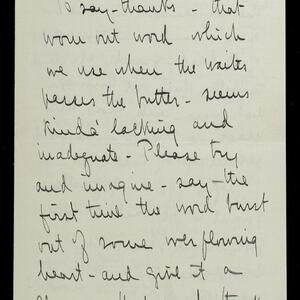 To say - thanks - that
worn out word which
we use when the waiter
passes the butter - seems
kinda' lacking and
inadequate - Please try
and imagine - say - the
first time the word burst
out of some overflowing
heart - and give it a